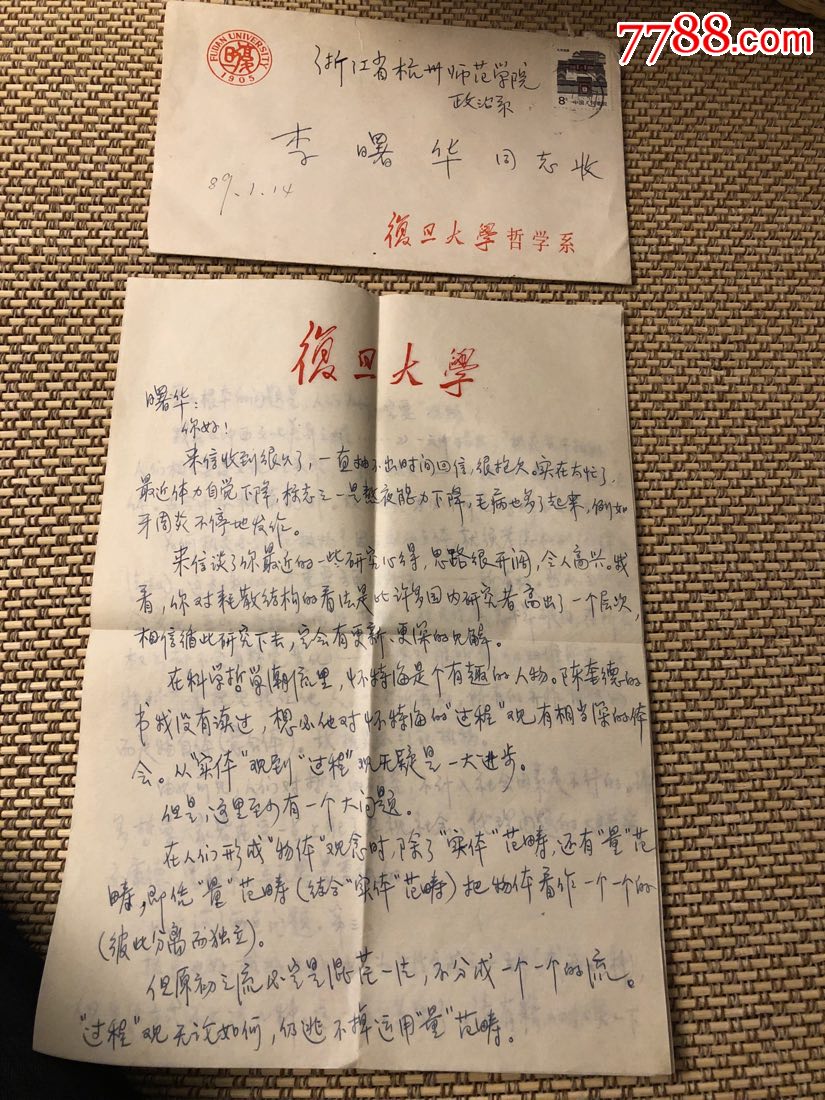 7788.com
FUDAN UNIVERSITY
1905
浙江省杭州师范学院
政治系
8分 中国人民邮政
李曙华同志收
89.1.14
復旦大學哲学系
復旦大學
曙华:
你好!
来信收到很久了,一直抽不出时间回信,很抱欠。实在太忙了,
最近体力自觉下降,标志之一是熬夜能力下降,毛病也多了起来,例如
牙周炎不停地发作。
来信谈了你最近的一些研究心得,思路很开阔,令人高兴。我
看,你对耗散结构的看法是比许多国内研究者高出了一个层次,
相信循此研究下去,定会有更新、更深的见解。
在科学哲学潮流里,怀特海是个有趣的人物。陈奎德的
书我没有读过,想必他对怀特海的“过程”观有相当深的体
会。从“实体”观到“过程”观无疑是一大进步。
但是,这里至少有一个大问题。
在人们形成“物体”观念时,除了“实体”范畴,还有“量”范
畴,即凭“量”范畴(结合“实体”范畴)把物体看作一个一个的
(彼此分离而独立)。
但原初之流必定是混茫一片,不分成一个一个的流。
“过程”观无论如何,仍逃不掉运用“量”范畴。